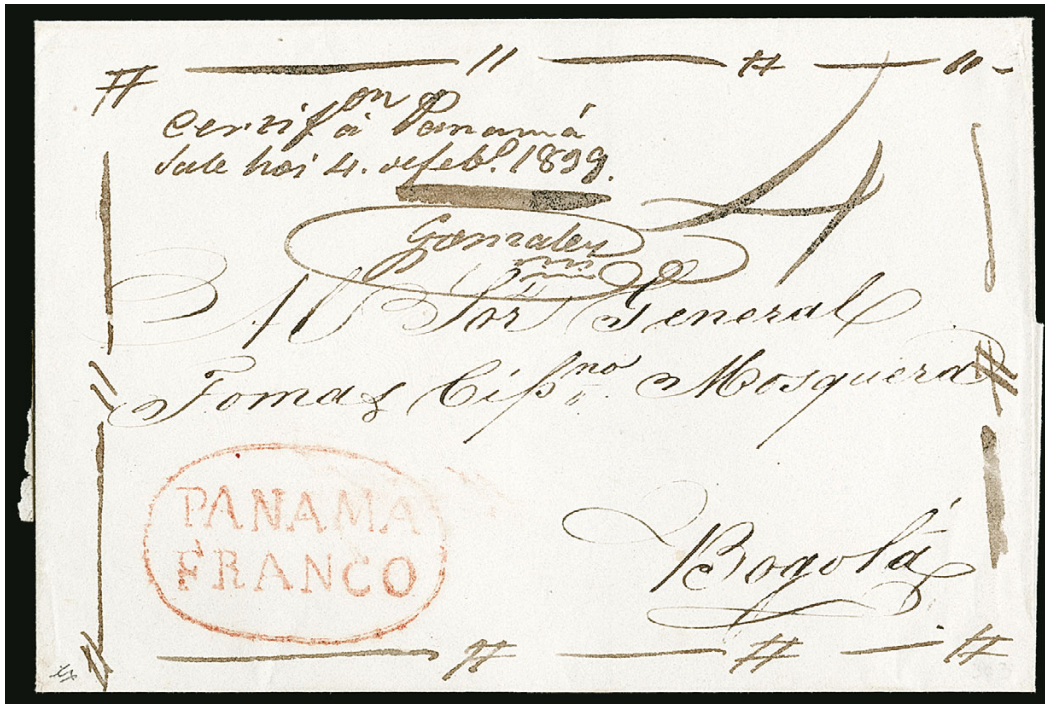 Certif.on
à Panamá
Sale hoi 4. de feb.o 1839.
Gonzalez
4
Al Sor General
Tomas Cip.no Mosquera
PANAMA
FRANCO
Bogotá